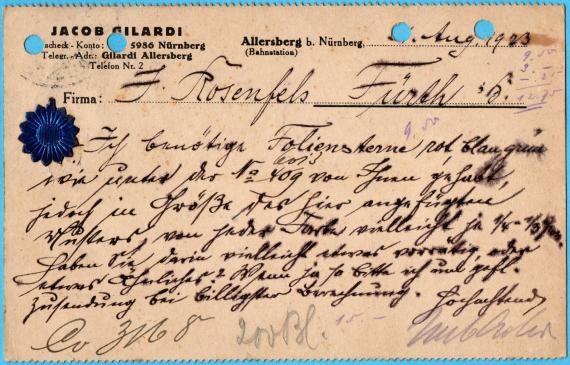 JACOB GILARDI
scheck-Konto: 5986 Nürnberg
Telegr.-Adr.: Gilardi Allersberg
Telefon Nr. 2
Allersberg b. Nürnberg, Aug. 1923
(Bahnstation)
9.00
Firma: J. Rosenfels Fürth i/B.
9.00
Ich benötige Foliensterne, rot, blau, grün
wie unter der No 409 von Ihnen gehabt,
jedoch in Größe des hier angefügten
Musters, von jeder Farbe vielleicht je
Haben Sie darin vielleicht etwas vorrätig oder
etwas Ähnliches? Wenn ja so bitte ich um gefl.
Zusendung bei billigster Berechnung. Hochachtend
Co 3168 200 Bl. 15.-